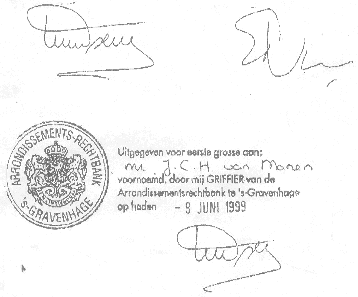 ARRONDISSEMENTS-RECHTBANK
'S-GRAVENHAGE
Uitgegeven voor eerste grosse aan:
mr. J.C.H van Manen
voornoemd, door mij GRIFFIER van de
Arrondissementsrechtbank te 's-Gravenhage
op heden - 8 JUNI 1999